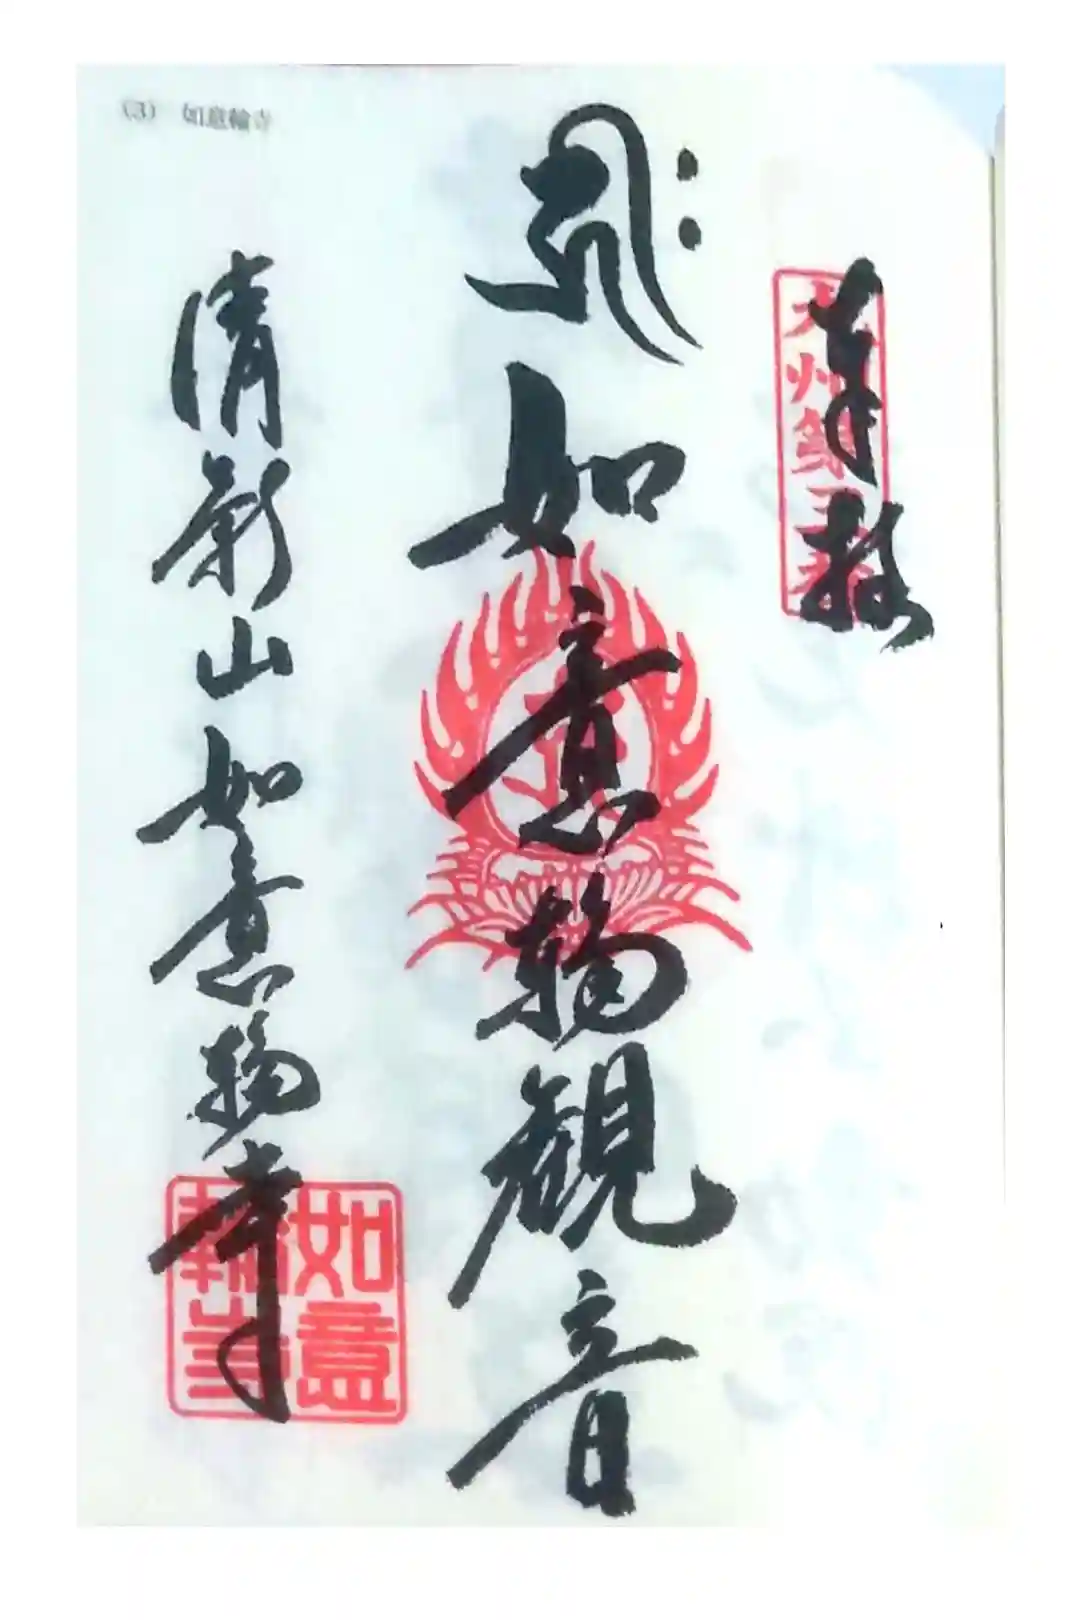 (3) 如意輪寺
奉拝
九州第三番
如意輪観音
清影山如意輪寺
如意輪寺